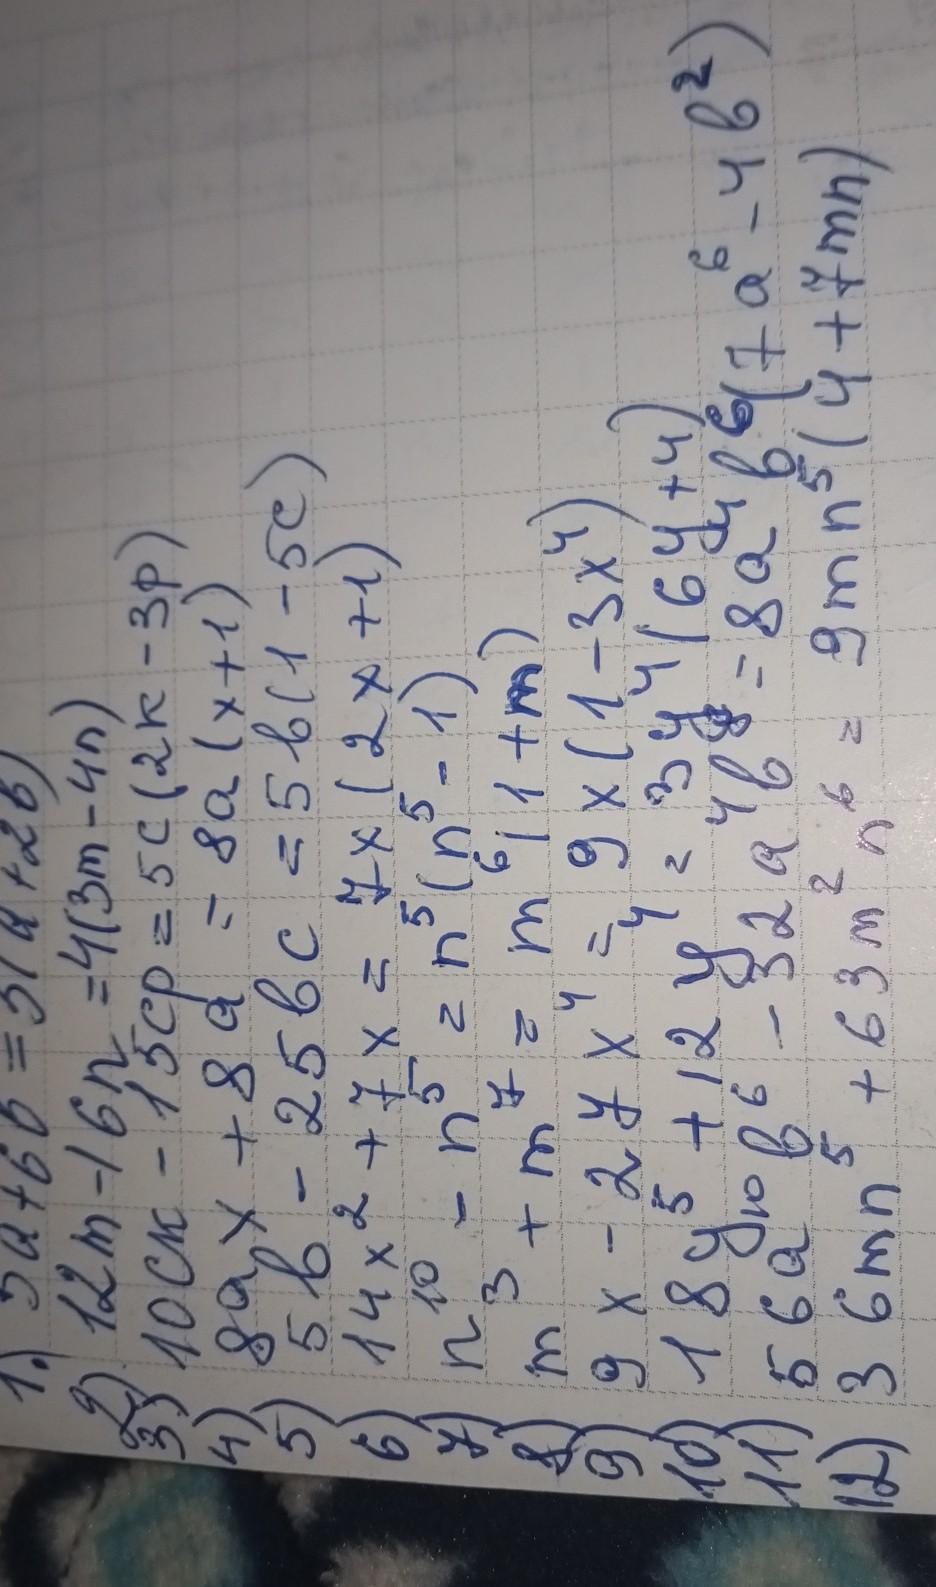 1) 3a+6b=3(a+2b)
2) 12m-16n=4(3m-4n)
3) 10ck-15cp=5c(2k-3p)
4) 8ax+8a=8a(x+1)
5) 5b-25bc=5b(1-5c)
6) 14x²+7x=7x(2x+1)
7) n¹⁰-n⁵=n⁵(n⁵-1)
8) m³+m⁷=m⁶(1+m)
9) 9x-27x⁴=9x(1-3x⁴)
10) 18y⁵+12y⁴=3y⁴(6y+4)
11) 56a¹⁰b⁶-32a⁴b⁸=8a⁴b⁶(7a⁶-4b²)
12) 36mn⁵+63m²n⁶=9mn⁵(4+7mn)